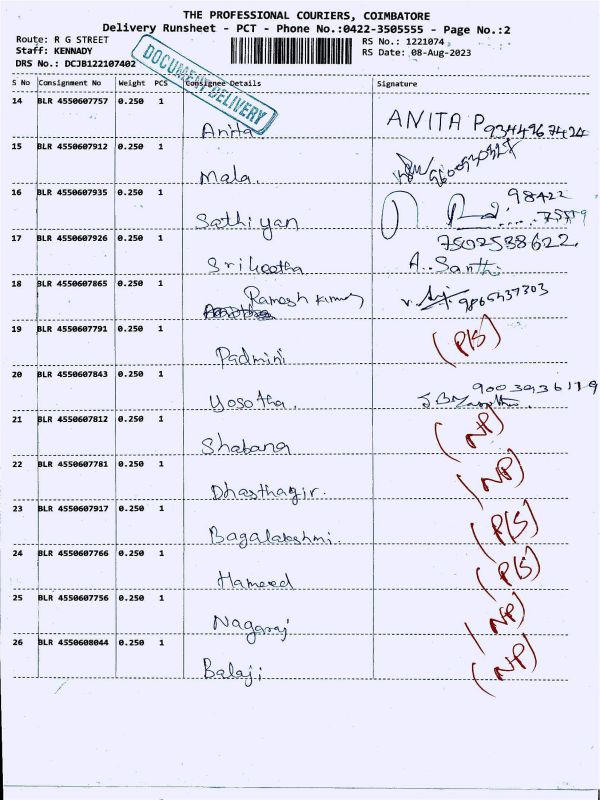 THE PROFESSIONAL COURIERS, COIMBATORE
Delivery Runsheet - PCT - Phone No.:0422-3505555 - Page No.:2
Route: R G STREET
Staff: KENNADY
DRS No.: DCJB122107402
RS No.: 1221074
RS Date: 08-Aug-2023
DOCUMENT DELIVERY
S No Consignment No Weight PCS Consignee Details Signature
14 BLR 4550607757 0.250 1 Anita ANITA P 9344967424
15 BLR 4550607912 0.250 1 Mala.
16 BLR 4550607935 0.250 1 Sathiyan 98422
17 BLR 4550607926 0.250 1 Srileetha 7502538622.
A. Santhi
18 BLR 4550607865 0.250 1 Ramesh kumar 9865437303
19 BLR 4550607791 0.250 1 Padmini (P/S)
20 BLR 4550607843 0.250 1 Yosotha. 9003936119
21 BLR 4550607812 0.250 1 Shabana (NP)
22 BLR 4550607781 0.250 1 Dhasthagir. (NP)
23 BLR 4550607917 0.250 1 Bagalakshmi. (P/S)
24 BLR 4550607766 0.250 1 Hameed (P/S)
25 BLR 4550607756 0.250 1 Nagaraj (NP)
26 BLR 4550608044 0.250 1 Balaji (NP)